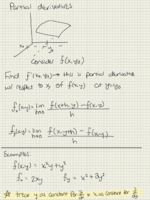 Partial derivatives
Consider f(x,y)
Find f'(x,y₀) → this is partial derivative
w/ respect to x, of f(x,y) at y=y₀
fₓ(x,y) = lim h→0 f(x+h,y) - f(x,y) / h
f_y(x,y) = lim h→0 f(x,y+h) - f(x,y) / h
Examples:
f(x,y) = x²y + y³
fₓ = 2xy f_y = x² + 3y²
treat y as constant for ∂/∂x + x as constant for ∂/∂y